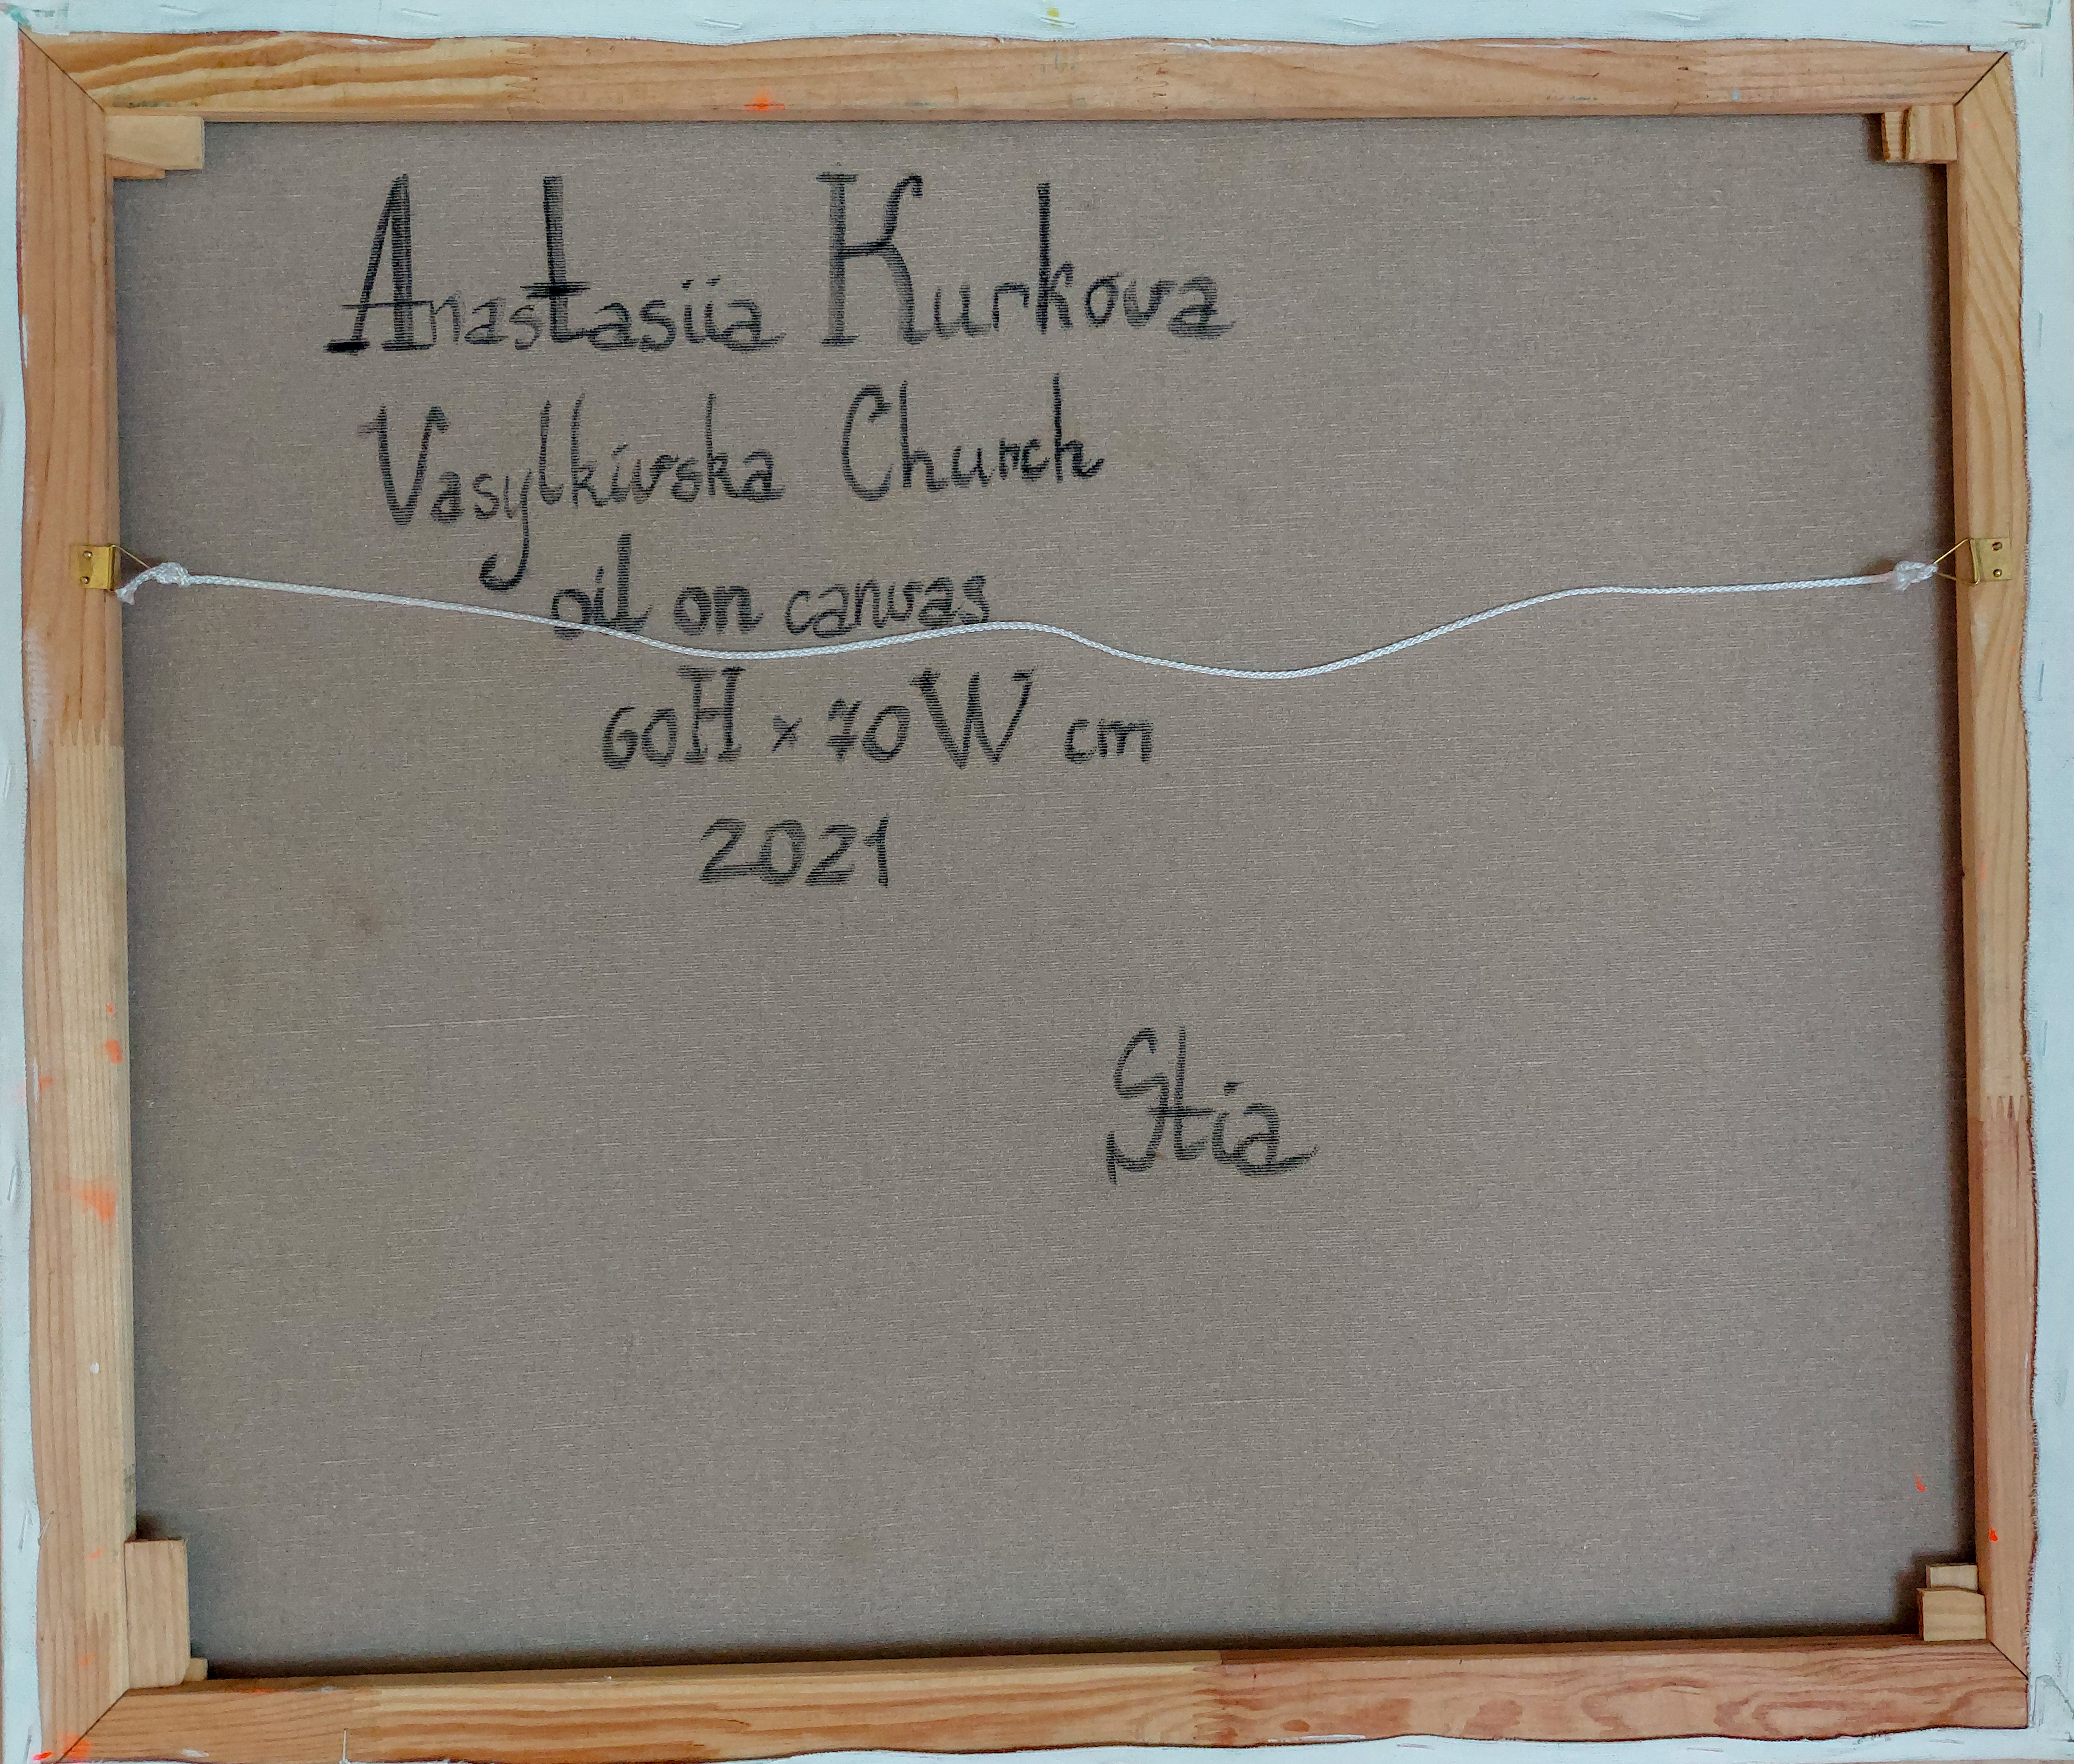 Anastasiia Kurkova
Vasylkivska Church
oil on canvas
60H x 70W cm
2021
Stia